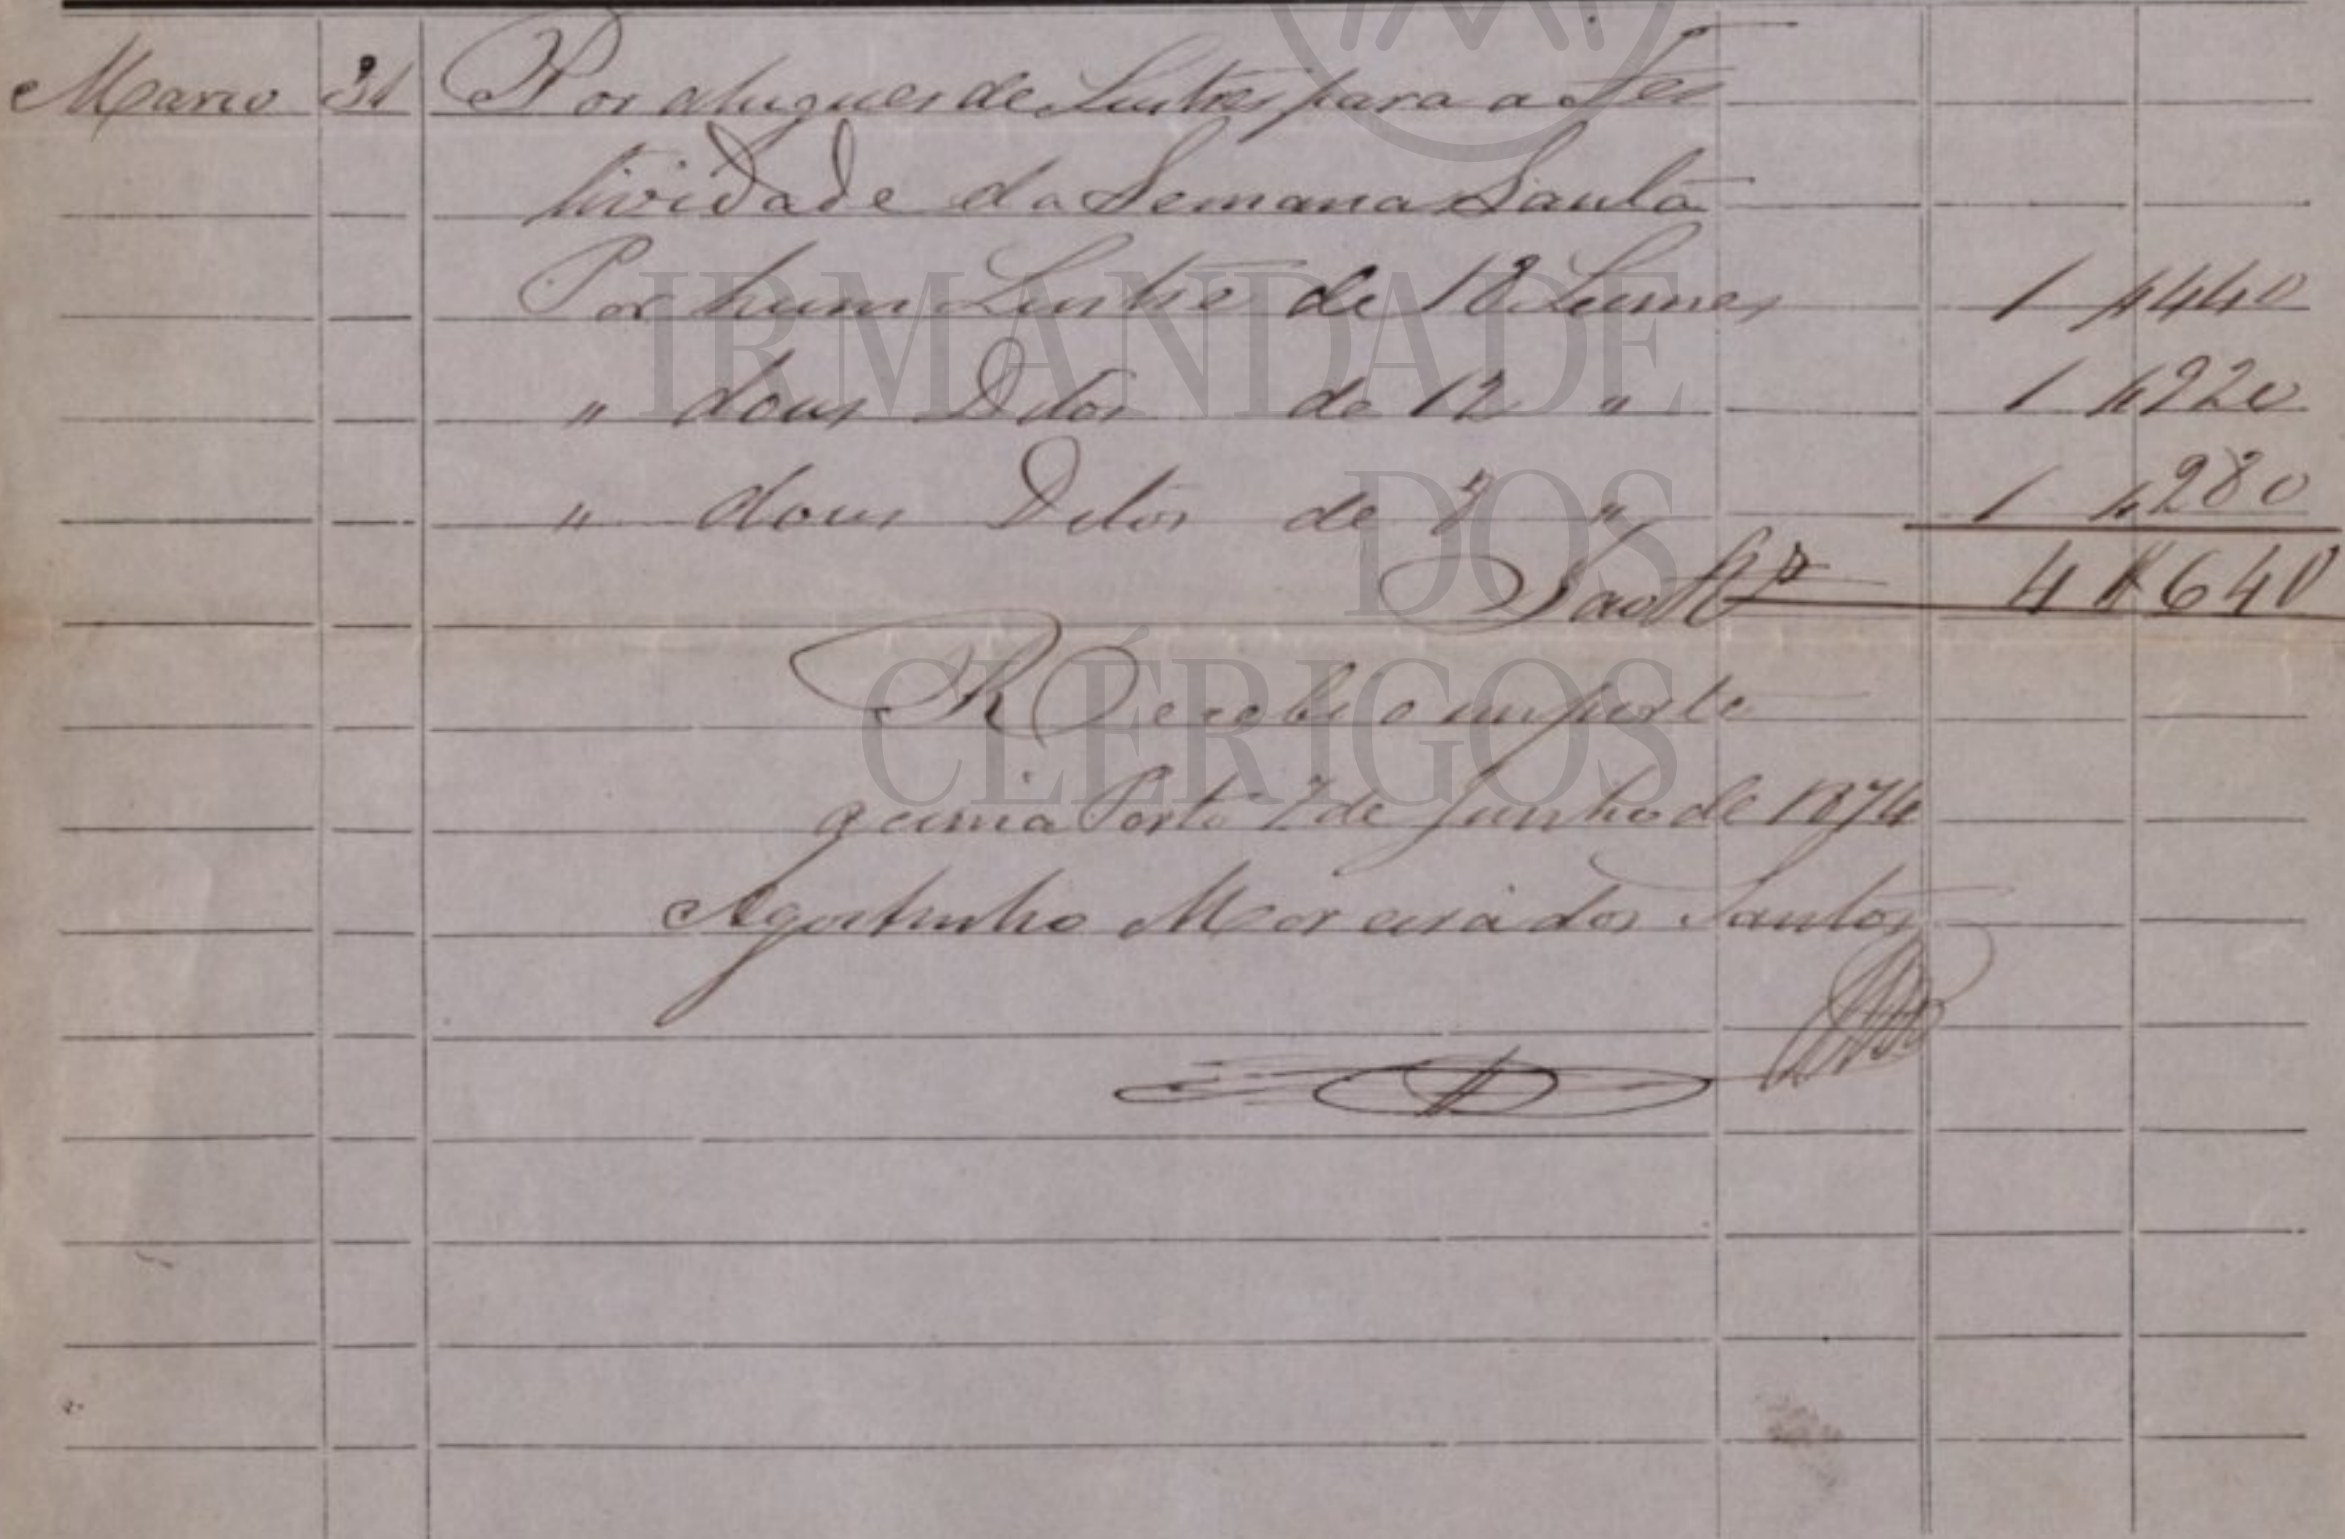 Marco 31 Por alugues de Lustres para a Fes
tividade da Semana Santa
Por hum Lustre de 18 Lumes 1 $440
" dous Ditos de 12 " 1 $920
" dous Ditos de 8 " 1 $280
São Rs 4 $640
Recebi o importe
acima Porto 7 de Junho de 1874
Agostinho Moreira dos Santos
IRMANDADE
DOS
CLÉRIGOS